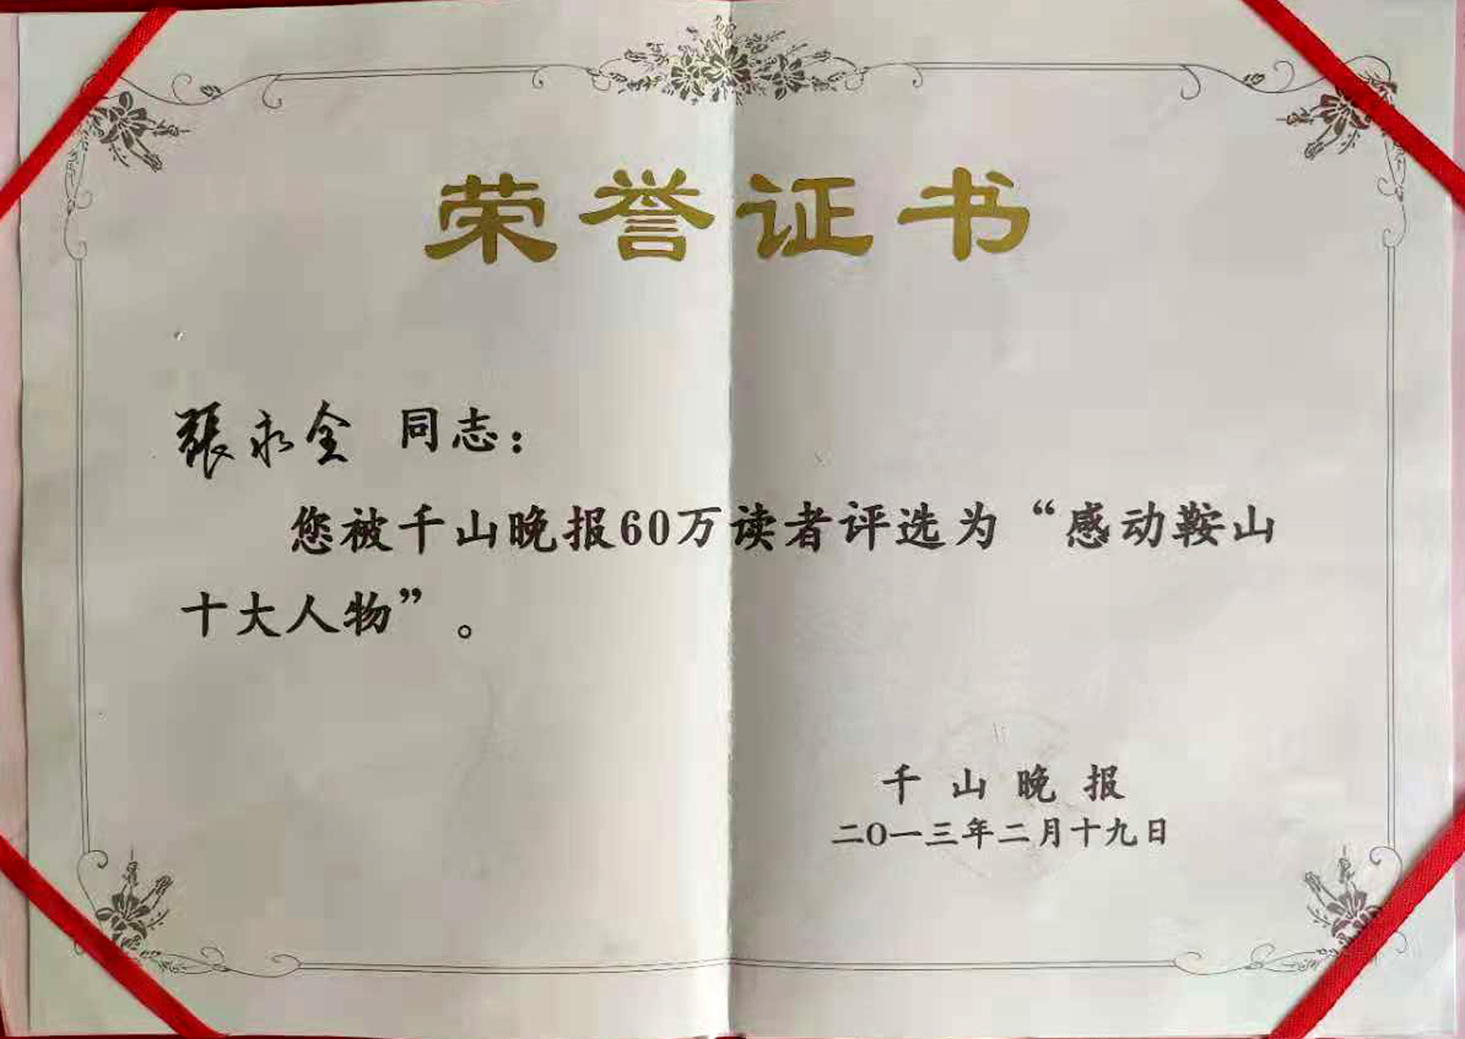 荣誉证书
張永全 同志：
您被千山晚报60万读者评选为“感动鞍山
十大人物”。
千山晚报
二〇一三年二月十九日